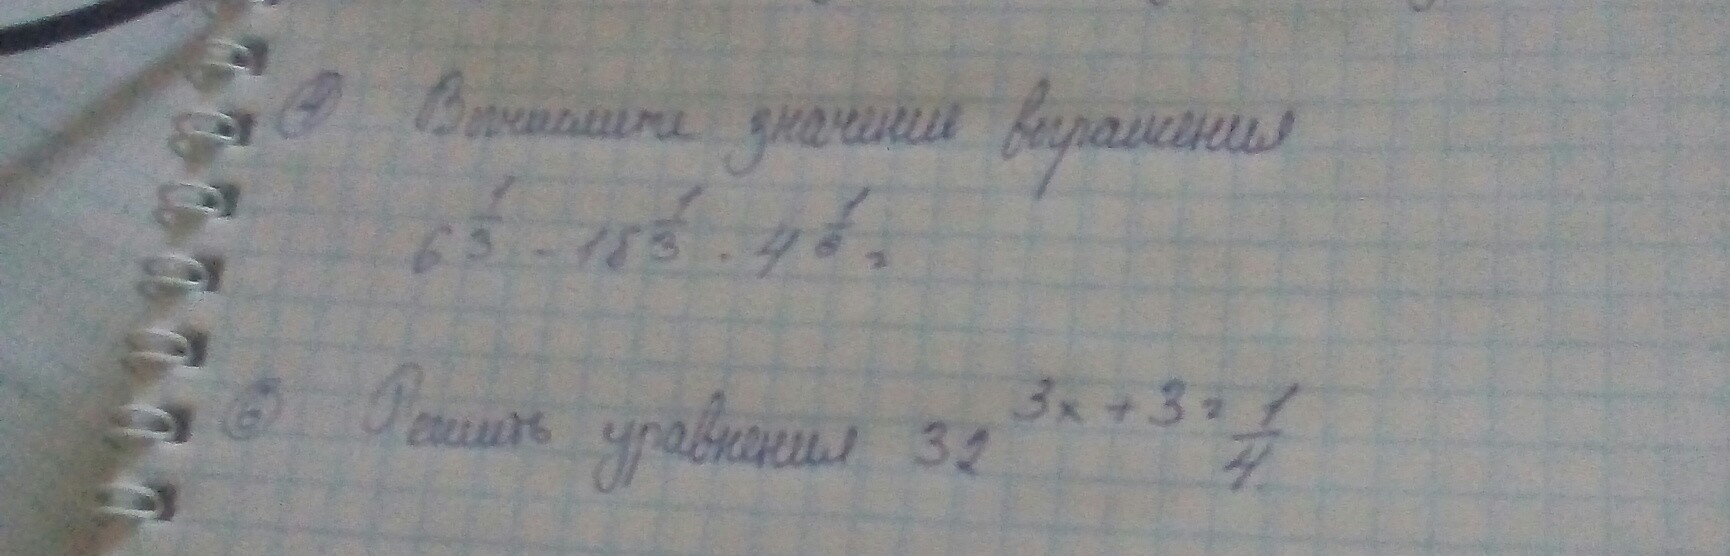 ④ Вычислите значение выражения
6^{1/3} - 18^{1/3} · 4^{1/6} =
⑥ Решить уравнения 32^{3x+3} = 1/4